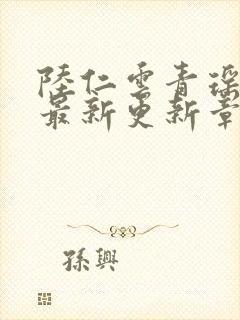 陸仁雲青瑶
最新更新章
孫興